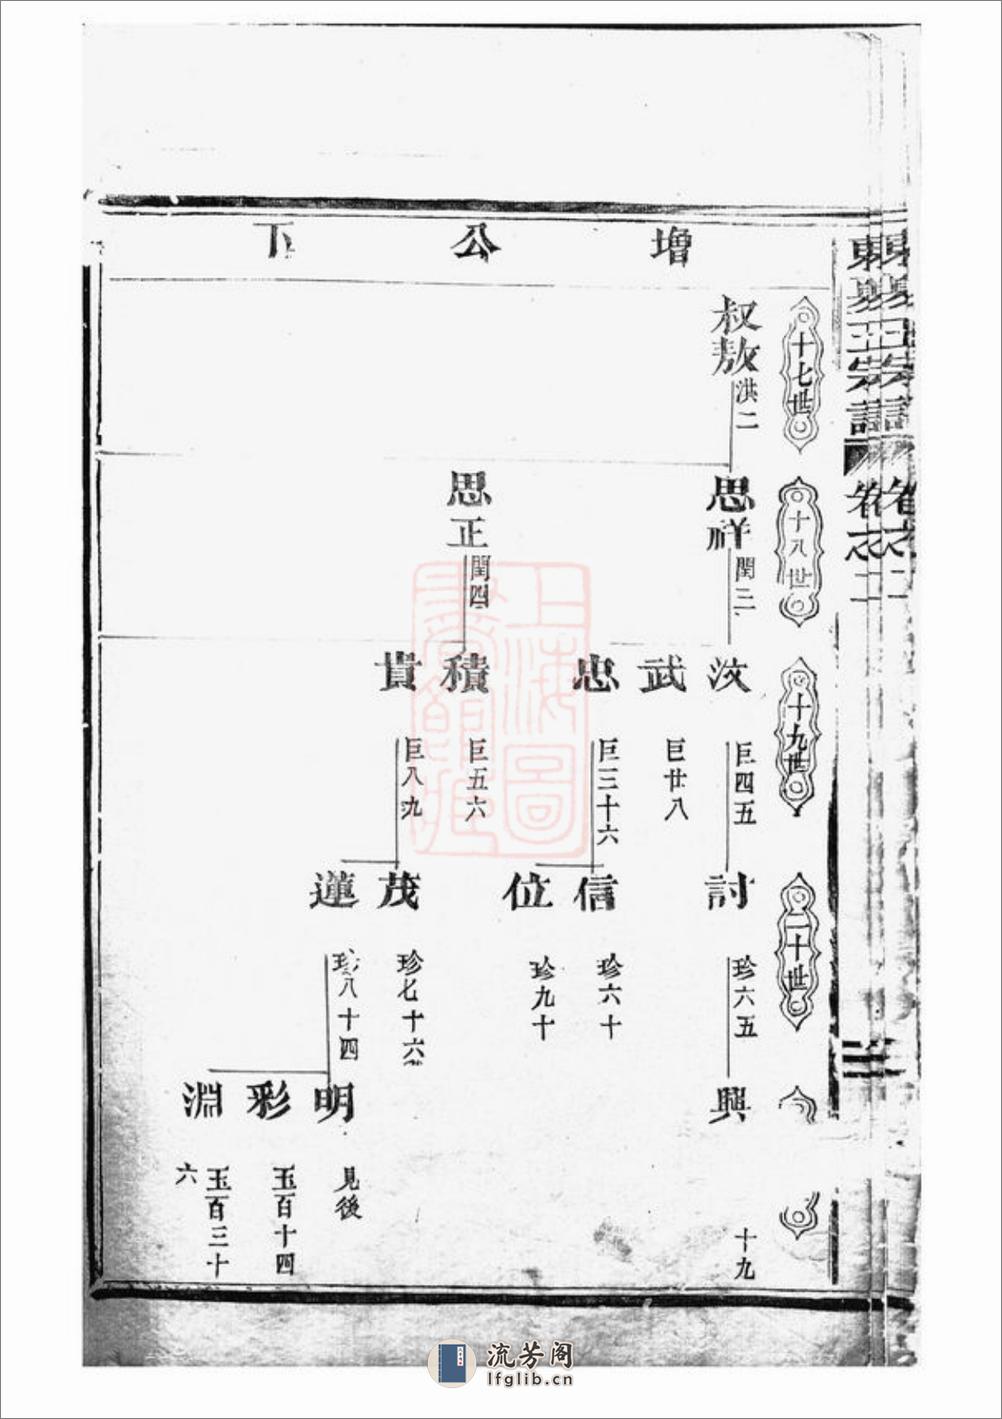 增公下
十七世
叔敖 洪二
十八世
思祥 閏三
思正 閏四
十九世
汶 巨四五
武 巨廿八
忠 巨三十六
積 巨五六
貴 巨八九
二十世
討 珍六五
信 珍六十
位 珍九十
茂 珍七十六
蓮 珍八十四
興 十九
明 見後
彩 玉百十四
淵 玉百三十六
上海圖書館藏
流芳阁
lfglib.cn